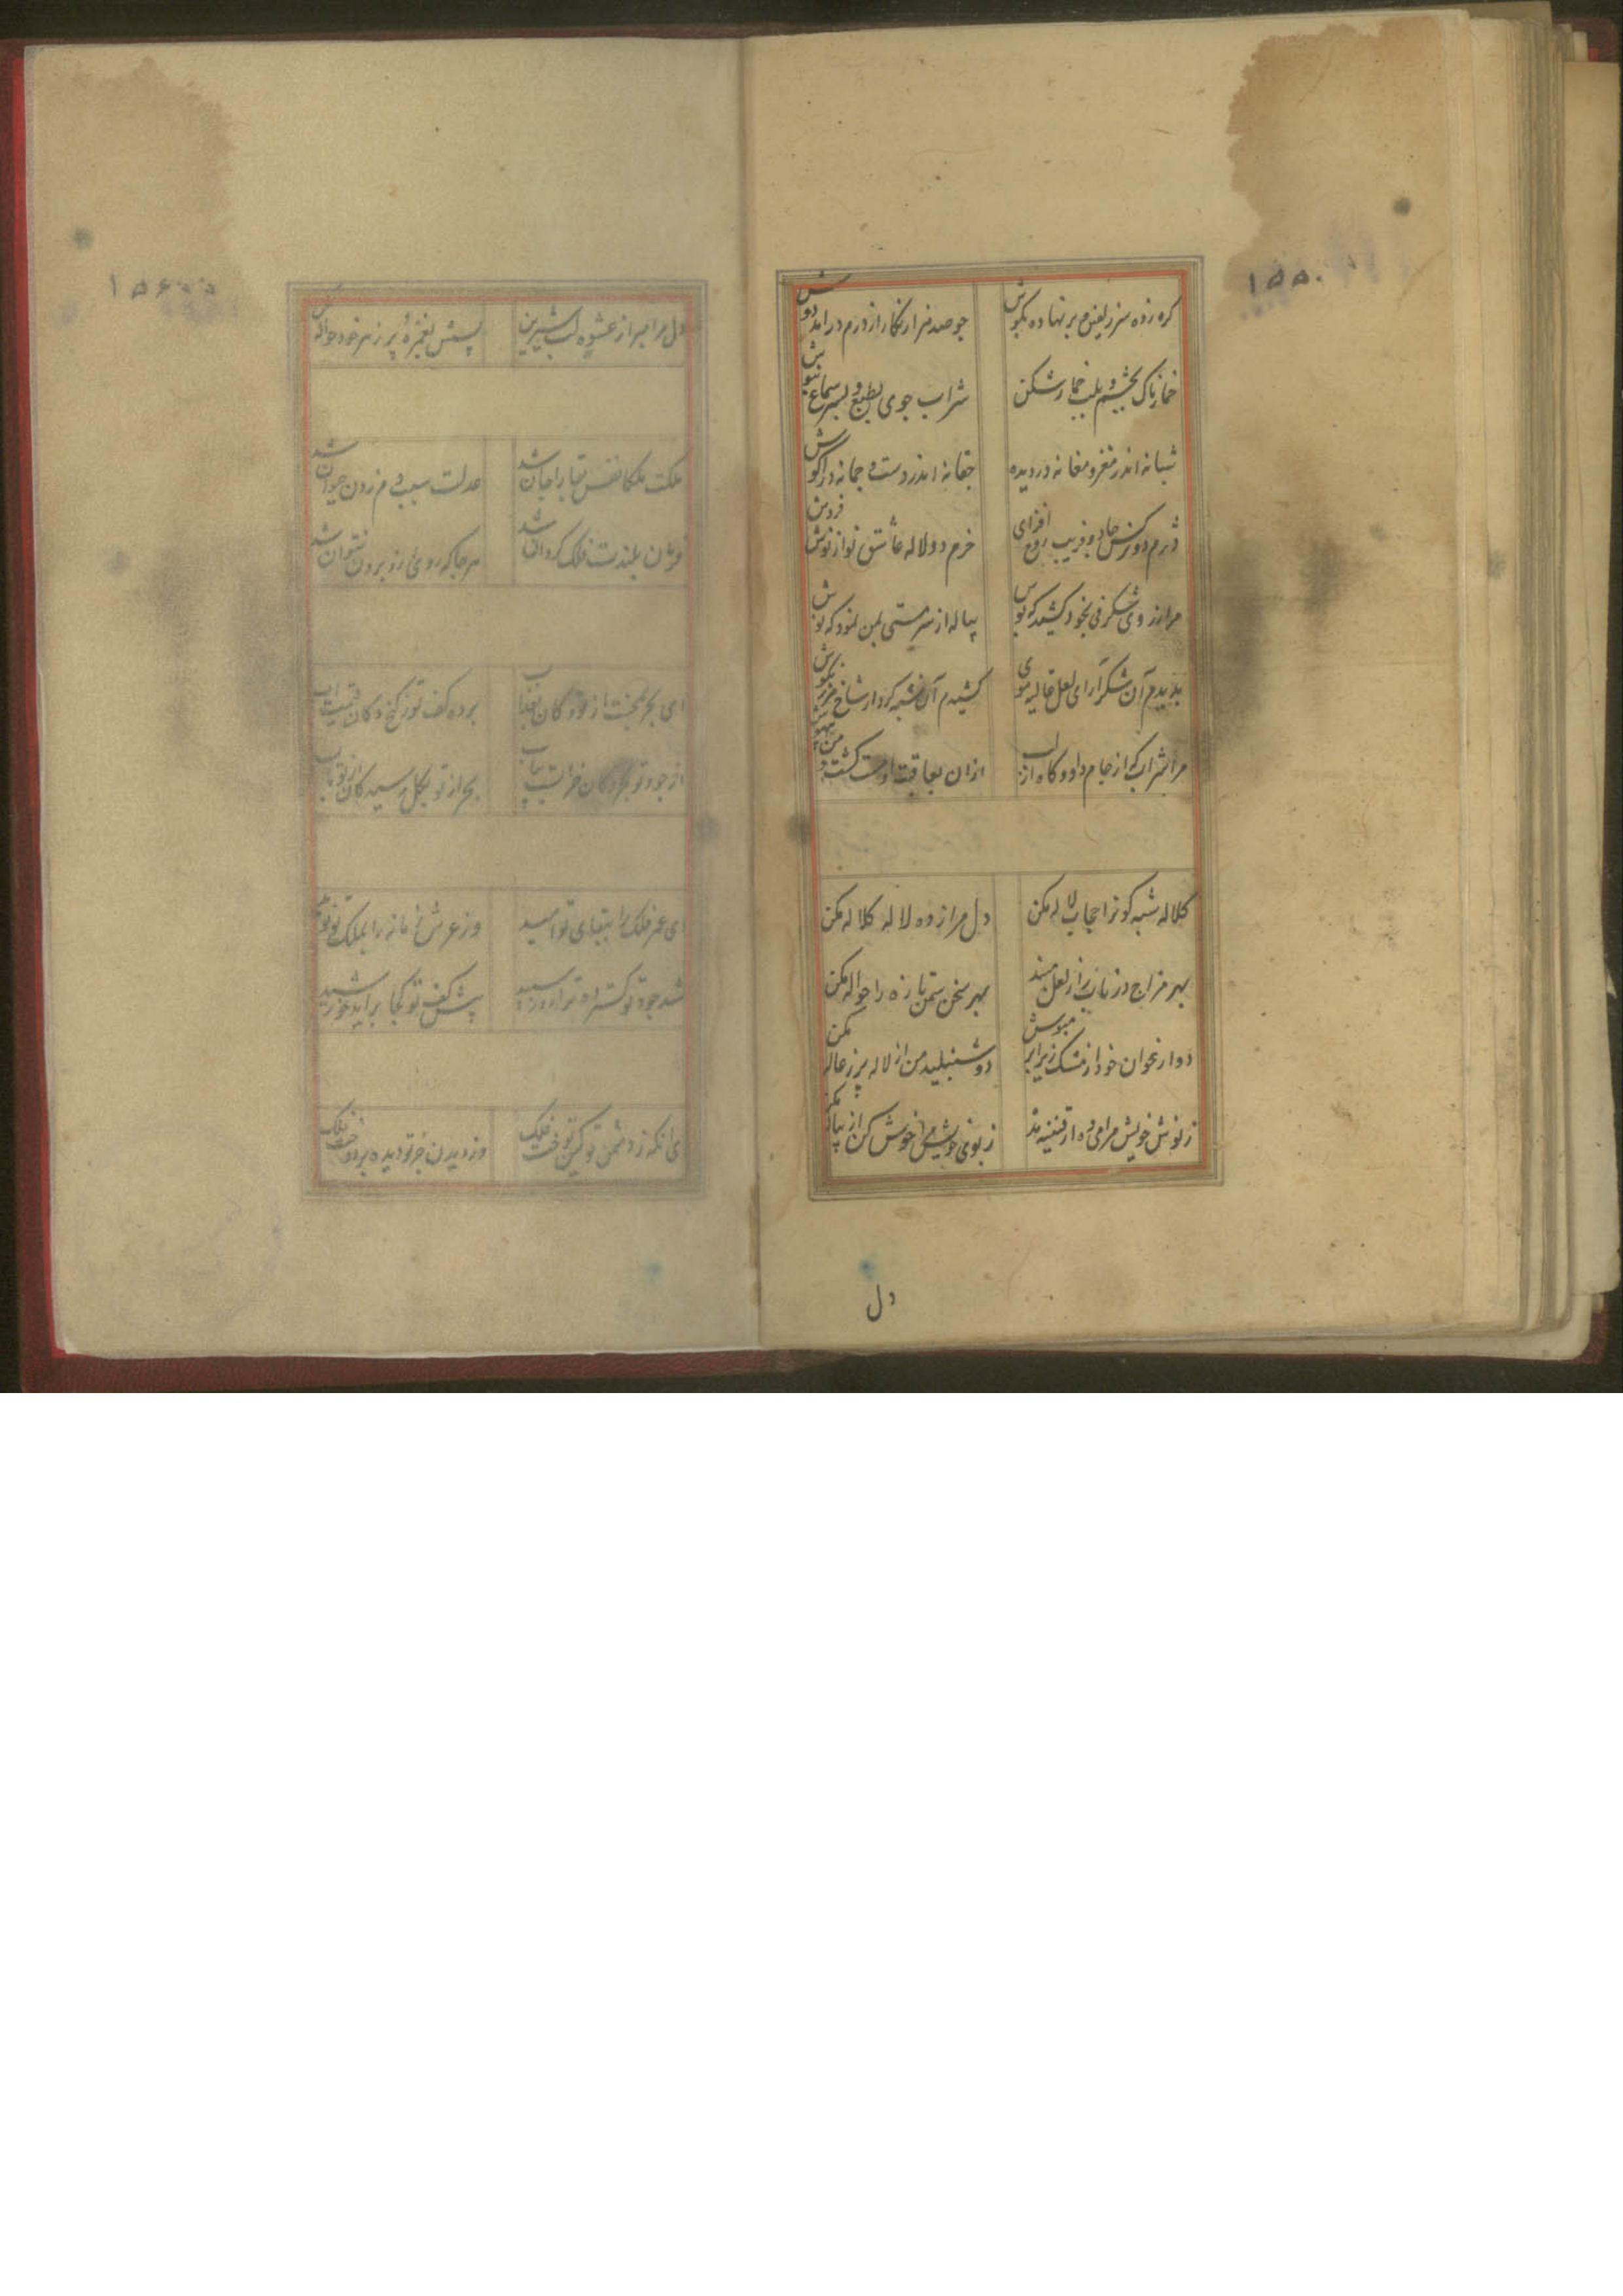 ۱۵۵۰
کره زده سر زلفین بر نهاده بگوش
چو صد هزار نگار از درم درآمد دوش
خمارناک بچشم و بلب خمارشکن
شراب جوی بطبع و بسر سماع نیوش
شبانه اندر مغز و مغانه در دیده
چغانه اندر دست و چمانه در آگوش
دژم دو نرگس جادو فریب روح افزای
خرم دو لاله عاشق نواز نوش فروش
مرا ز روی شگرفی بخود کشید که بوس
پیاله از سر مستی بمن نمود که نوش
بدیدم آن شکر آرای لعل غالیه موی
کشیدم آن
مرا شراب که از جام داد و گاه از لب
ازان بعاقبت او مست گشت و من بیهوش
کلاله شبه گونرا حجاب لاله مکن
دل مرا ز ده لاله کلاله مکن
بهر مزاج در ناب را ز لعل مبند
بهر سخن ستمن تازه را حواله مکن
دو ارغوان خود از مشک زیر ابر مپوش
دو شنبلید من از لاله پر ز ژاله مکن
ز نوش خویش مرا می ده از قنینه مده
ز بوی خویش مرا خوش کن از پیاله مکن
دل
۱۵۶۰
دل مرا مبر از عشوه لب شیرین
پسش بغمزه پر زهر خود حواله مکن
ملکت ملکا نفس بقا را جان شد
عدلت سبب و مر زدن حیوان شد
فرمان بلندت فلک گردان شد
هر جا که روی زو برون نتوان شد
ای بحر بخفت از تو و کان
برده کف تو ز گنج و کان قیمت و آب
از جود تو بحر و کان خرابست
بحر از تو بگل رسید کان از تو بآب
ای عمر فلک را ببقای تو امید
وز عرش زمانه را بملک تو نوید
شد جود تو گستراه تر از
پیش کف تو کجا برآید خورشید
ای آنکه ز دشمن تو کین توخت فلک
وز دیدن جز تو دیده بردوخت فلک